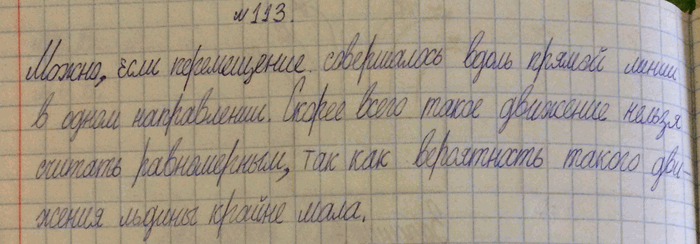 №113.
Можно, если перемещение совершалось вдоль прямой линии
в одном направлении. Скорее всего такое движение нельзя
считать равномерным, так как вероятность такого дви-
жения льдины крайне мала.